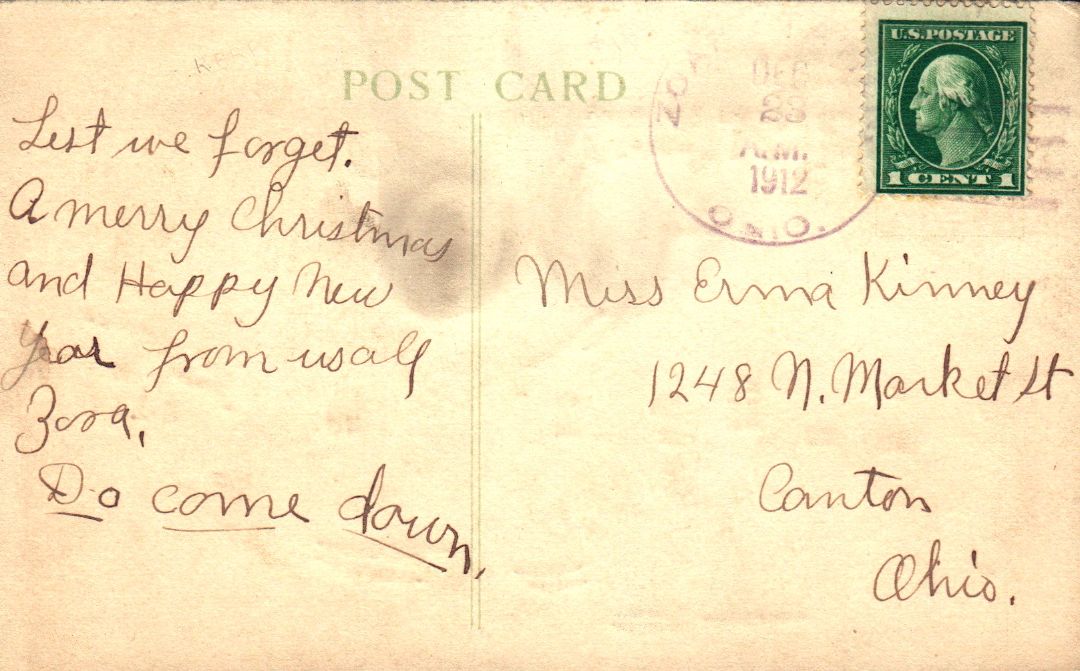 POST CARD
Lest we forget.
A merry Christmas
and Happy New
Year from us all
Zora.
Do come down.
ZO
DEC
23
A.M.
1912
OHIO.
U.S. POSTAGE
1 CENT 1
Miss Erma Kinney
1248 N. Market St
Canton
Ohio.